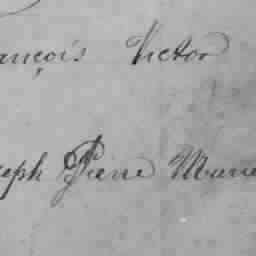 ançois Victor
seph Pierre Marie